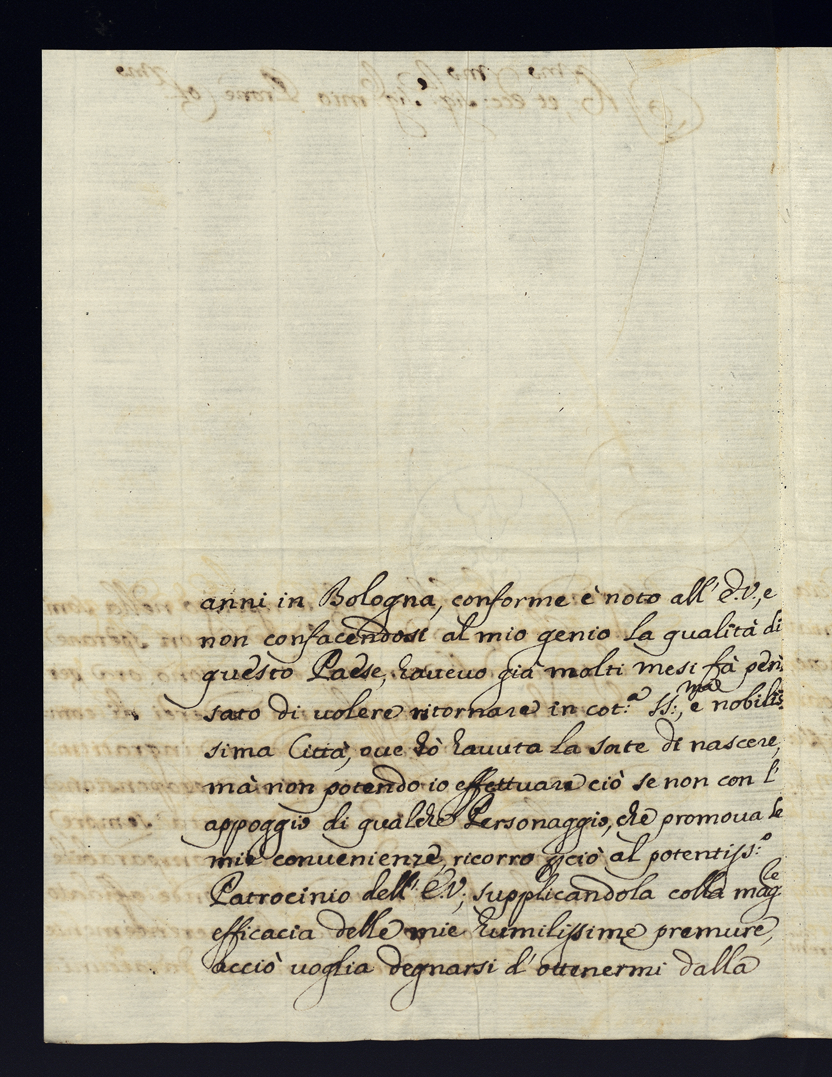 anni in Bologna, conforme è noto all' E.V., e
non confacendosi al mio genio la qualità di
questo Paese, havevo già molti mesi fà pen-
sato di volere ritornare in cot.ª SS:ma, e nobilis-
sima Città, ove hò havuta la sorte di nascere,
mà non potendo io effettuare ciò se non con l'
appoggio di qualche Personaggio, che promova le
mie convenienze, ricorro perciò al potentiss.º
Patrocinio dell' E.V., supplicandola colla mag.le
efficacia delle mie humilissime premure,
acciò voglia degnarsi d' ottenermi dalla